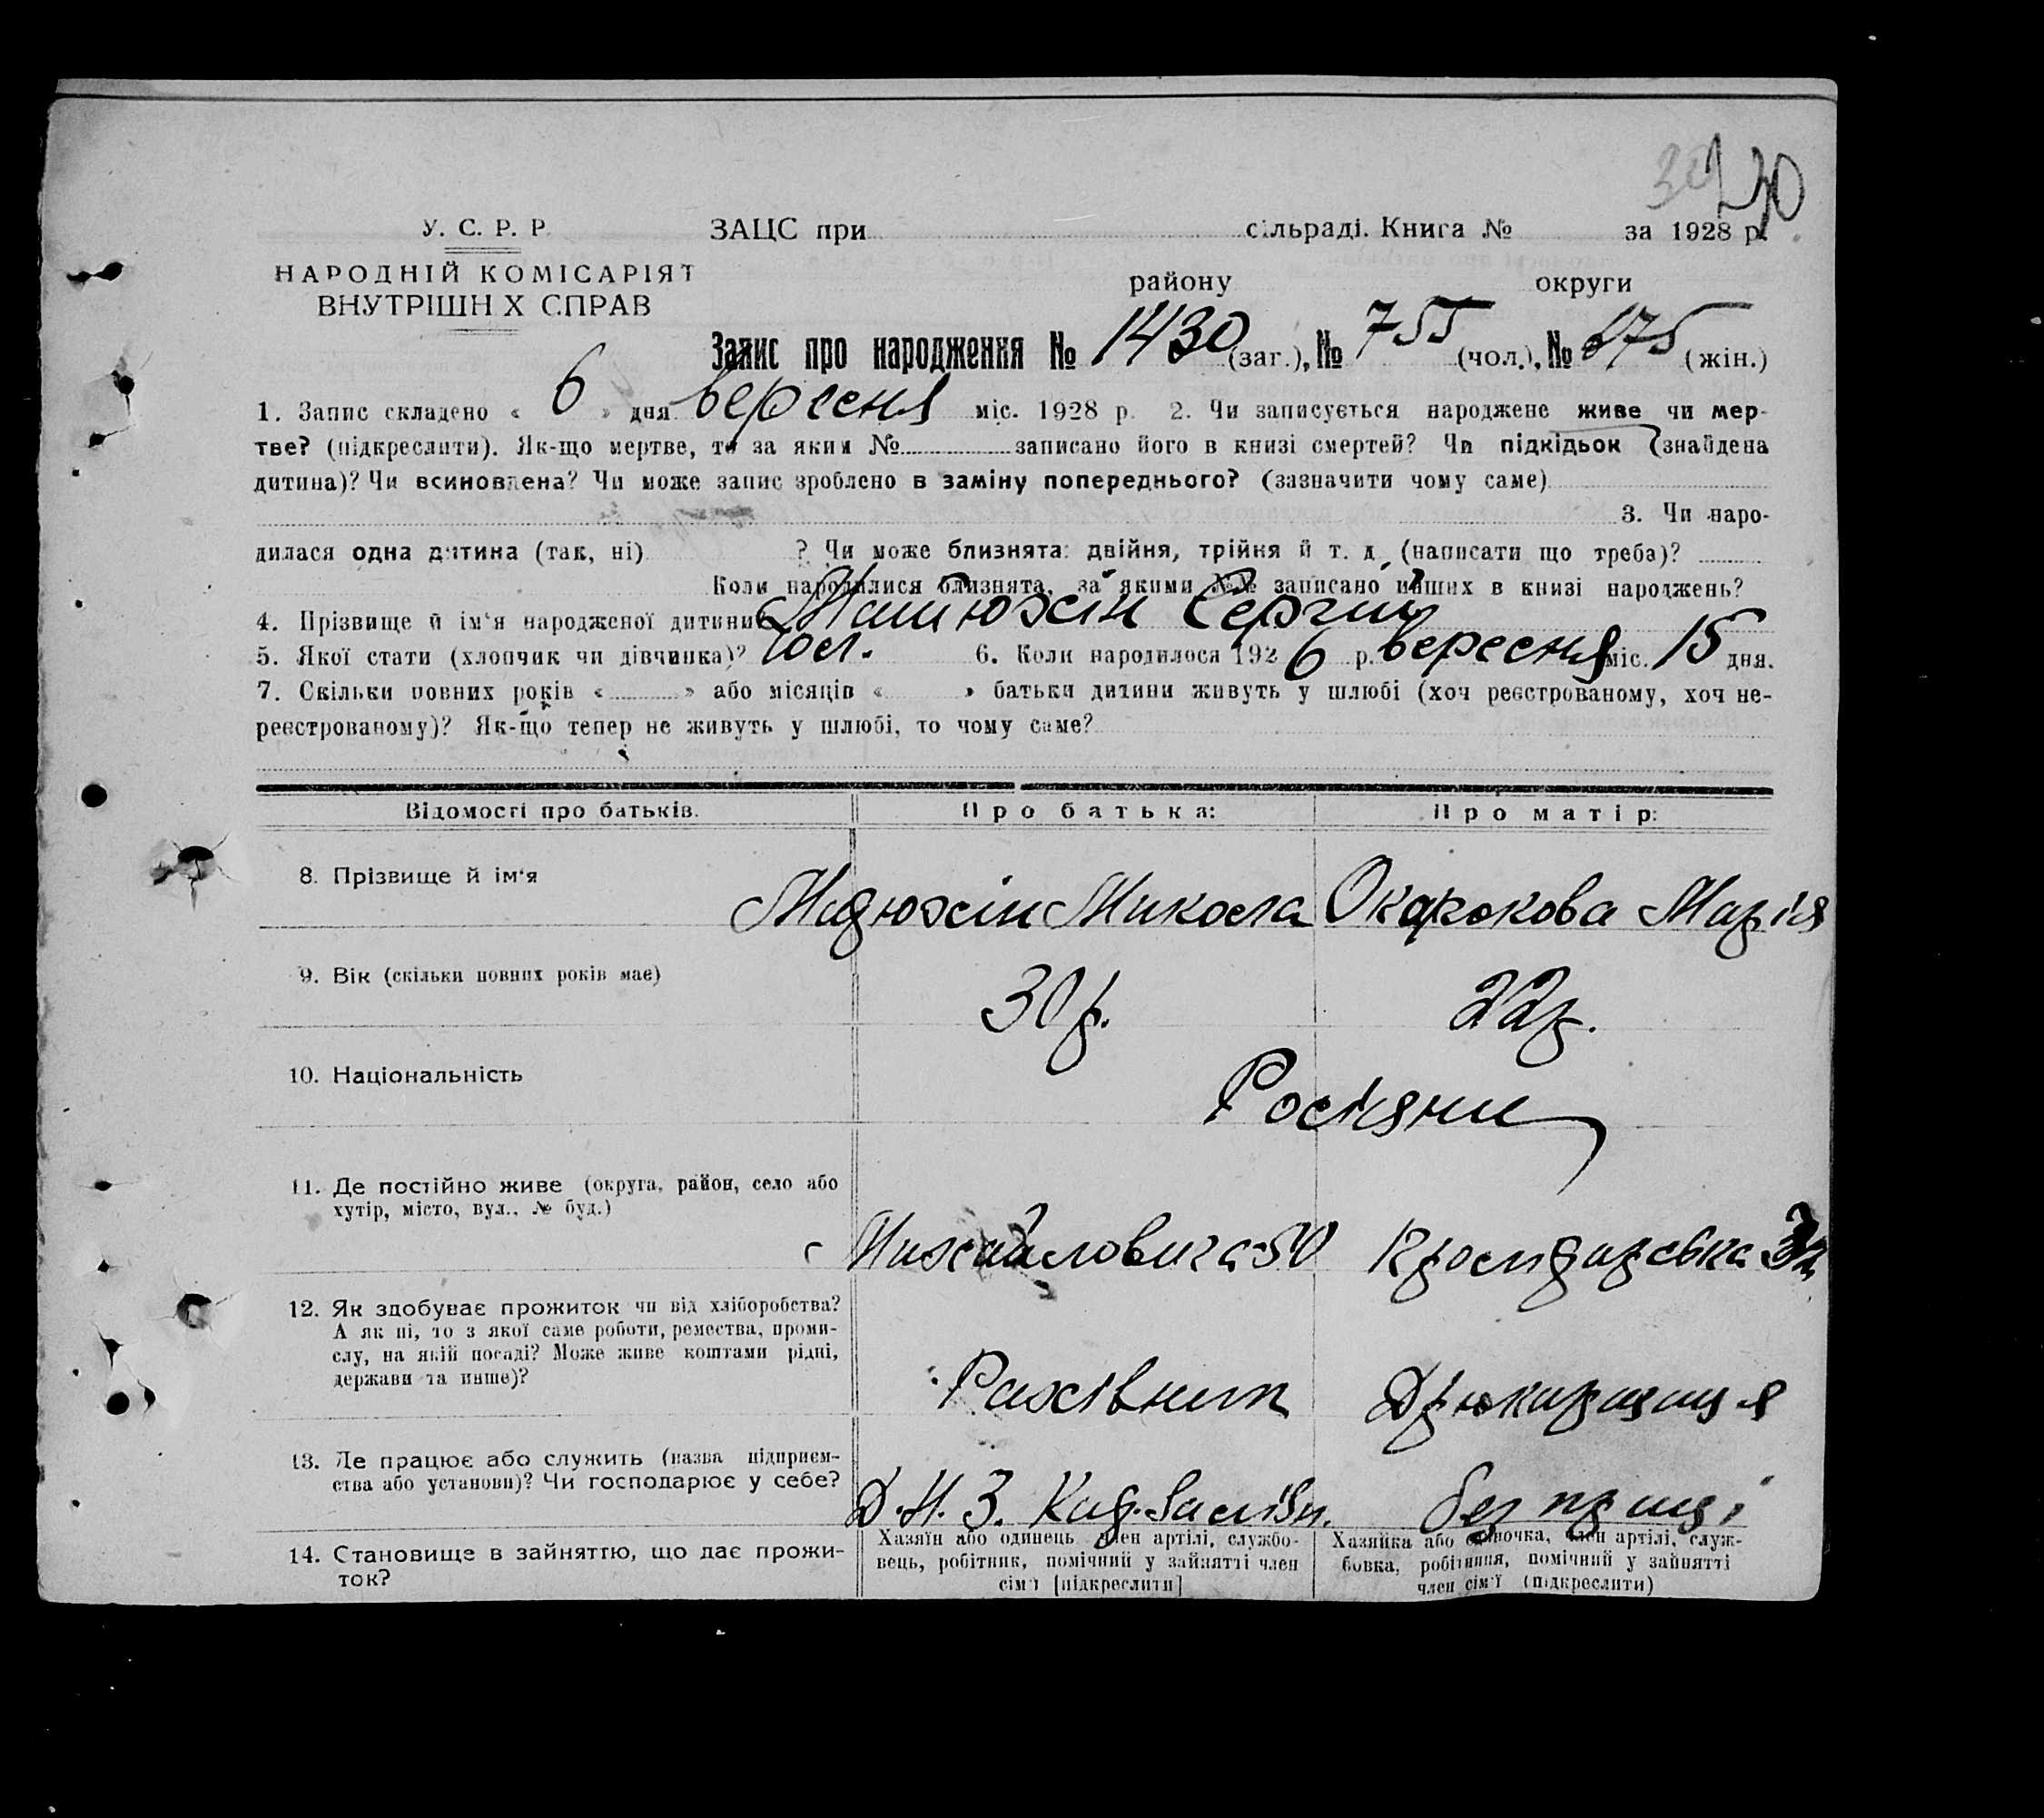 230
У. С. Р. Р.
НАРОДНІЙ КОМІСАРІЯТ
ВНУТРІШН Х СПРАВ
ЗАЦС при сільраді. Книга № за 1928 р.
району округи
Запис про народження № 1430 (заг.), № 755 (чол.), № 675 (жін.)
1. Запис складено « 6 » дня вересня міс. 1928 р. 2. Чи записується народжене живе чи мер-
тве? (підкреслити). Як-що мертве, то за яким № записано його в книзі смертей? Чи підкідьок (знайдена
дитина)? Чи всиновлена? Чи може запис зроблено в заміну попереднього? (зазначити чому саме)
3. Чи наро-
дилася одна дитина (так, ні) ? Чи може близнята: двійня, трійня й т. д. (написати що треба)?
Коли народилися близнята, за якими №№ записано инших в книзі народжень?
4. Прізвище й ім'я народженої дитини Матюхін Сергій
5. Якої стати (хлопчик чи дівчинка)? хл. 6. Коли народилося 192 6 р. вересня міс. 15 дня.
7. Скільки повних років « » або місяців « » батьки дитини живуть у шлюбі (хоч реєстрованому, хоч не-
реєстрованому)? Як-що тепер не живуть у шлюбі, то чому саме?
Відомості про батьків. Про батька: Про матір:
8. Прізвище й ім'я Матюхін Микола Окорокова Марія
9. Вік (скільки повних років має) 30 р. 22 р.
10. Національність Росіяни
11. Де постійно живе (округа, район, село або
хутір, місто, вул., № буд.)
Михайловича 50
12. Як здобуває прожиток чи від хліборобства?
А як ні, то з якої саме роботи, ремества, проми-
слу, на якій посаді? Може живе коштами рідні,
держави та инше)?
Рахівник Друкарщиця
13. Де працює або служить (назва підприєм-
ства або установи)? Чи господарює у себе?
Д. Н. З. без праці
14. Становище в зайняттю, що дає прожи-
ток?
Хазяїн або одинець член артілі, службо-
вець, робітник, помічний у зайнятті член
сім'ї [підкреслити]
Хазяйка або одиночка, член артілі, служ-
бовка, робітниця, помічний у зайнятті
член сім'ї (підкреслити)